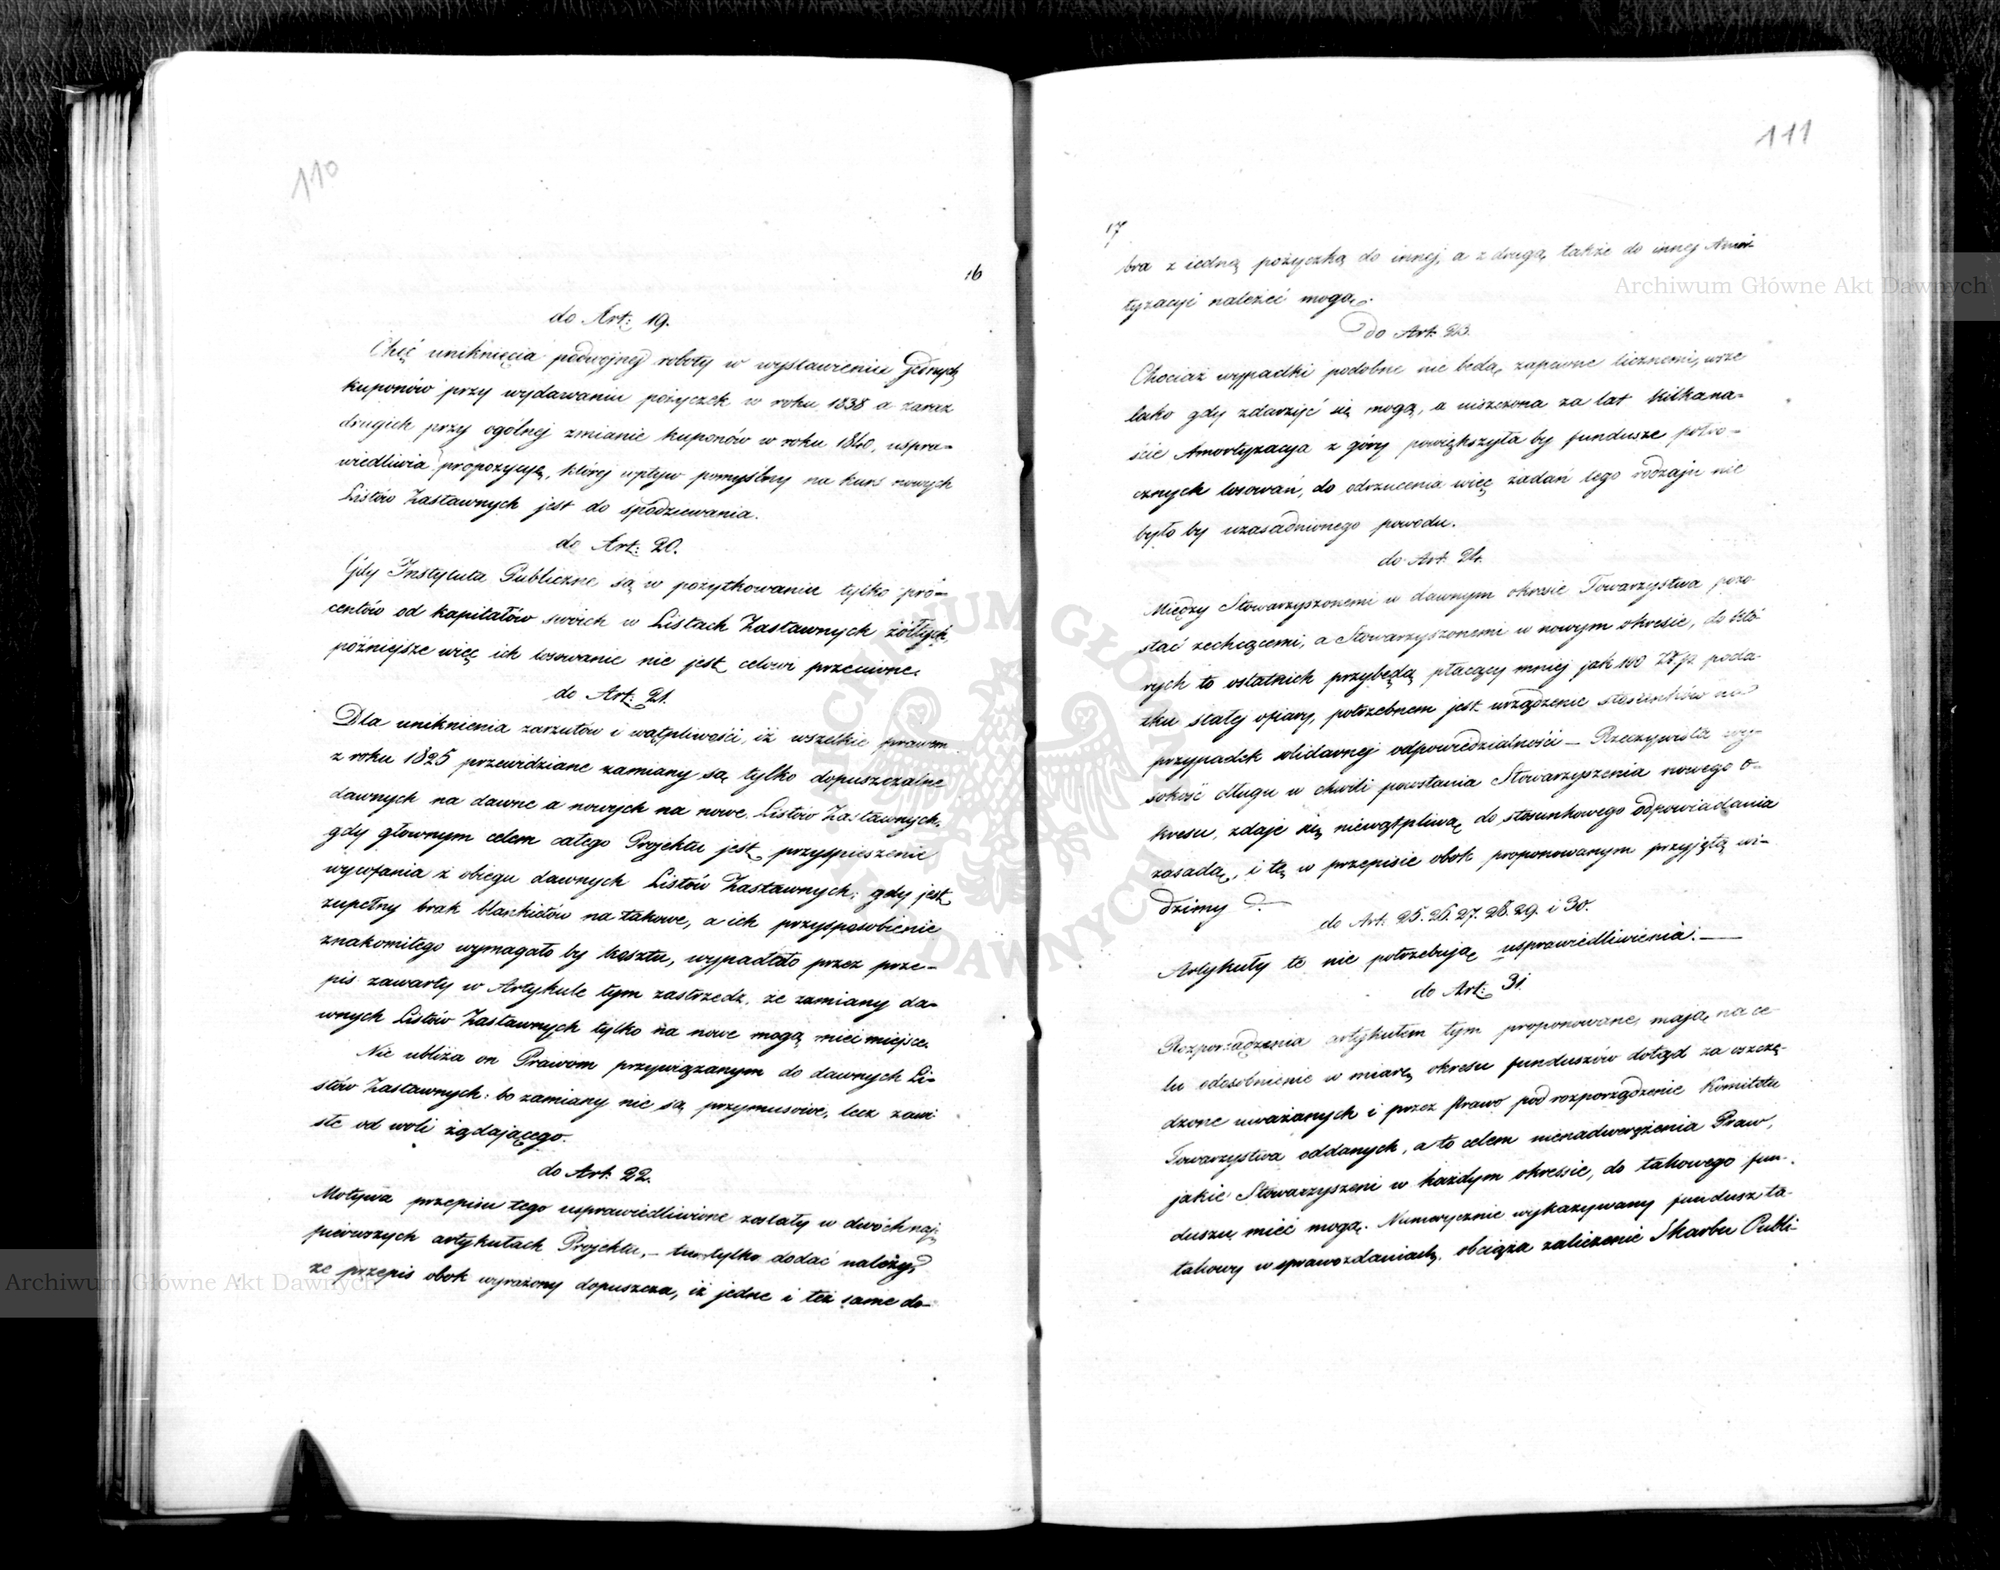 110
16
do Art: 19.
Chęć uniknięcia podwojnej roboty w wystawieniu jednych
kuponów przy wydawaniu pożyczek w roku 1838 a zaraz
drugich przy ogólnej zmianie kuponów w roku 1840, uspra-
wiedliwia propozycyą, której wpływ pomyślny na kurs nowych
Listów Zastawnych jest do spodziewania.
do Art: 20.
Gdy Instytuta Publiczne są w pożytkowaniu tylko pro-
centów od kapitałów swoich w Listach Zastawnych żółtych,
poźniejsze więc ich losowanie nie jest celowi przeciwne.
do Art: 21.
Dla uniknienia zarzutów i wątpliwości, iż wszelkie prawem
z roku 1825 przewidziane zamiany są tylko dopuszczalne
dawnych na dawne a nowych na nowe Listów Zastawnych,
gdy głownym celem całego Projektu jest przyspieszenie
wycofania z obiegu dawnych Listów Zastawnych; gdy jest
zupełny brak blankietów na takowe, a ich przysposobienie
znakomitego wymagało by kosztu, wypadało przez prze-
pis zawarty w Artykule tym zastrzedz, że zamiany da-
wnych Listów Zastawnych tylko na nowe mogą mieć miejsce.
Nie ubliża on Prawom przywiązanym do dawnych Li-
stów Zastawnych: bo zamiany nie są przymusowe, lecz zawi-
słe od woli żądającego.
do Art: 22.
Motywa przepisu tego usprawiedliwione zostały w dwóch naj-
pierwszych artykułach Projektu, – tu tylko dodać należy,
że przepis obok wyrażony dopuszcza, iż jedne i też same do-
111
17
bra z iedną pożyczką do innej, a z drugą także do innej Amor-
tyzacyi należeć mogą.
do Art: 23.
Chociaż wypadki podobne nie będą zapewne licznemi, wsze
lako gdy zdarzyć się mogą, a uiszczona za lat kilkana-
ście Amortyzacya z góry powiększyła by fundusze pół ro-
cznych losowań, do odrzucenia więc żądań tego rodzaju nie
było by uzasadnionego powodu.
do Art: 24.
Między Stowarzyszonemi w dawnym okresie Towarzystwa pozo-
stać zechcącemi, a Stowarzyszonemi w nowym okresie, do któ-
rych to ostatnich przybędą płacący mniej jak 100 Zł.p. poda-
tku stałej ofiary, potrzebnem jest urządzenie stosunków na
przypadek solidarnej odpowiedzialności – Rzeczywista wy-
sokość długu w chwili powstania Stowarzyszenia nowego o-
kresu, zdaje się niewątpliwą do stosunkowego odpowiadania
zasadą, i tę w przepisie obok proponowanym przyjętą wi-
dzimy.
do Art: 25. 26. 27. 28. 29. i 30.
Artykuły te nie potrzebują usprawiedliwienia. —
do Art: 31.
Rozporządzenia artykułem tym proponowane, mają na ce-
lu odosobnienie w miarę okresu funduszów dotąd za oszczę-
dzone uważanych i przez Prawo pod rozporządzenie Komitetu
Towarzystwa oddanych, a to celem nienadwerężenia Praw,
jakie Stowarzyszeni w każdym okressie, do takowego fun-
duszu mieć mogą. Numerycznie wykazywany fundusz ta-
takowy w sprawozdaniach, obciąża zaliczenie Skarbu Publi-
Archiwum Główne Akt Dawnych
Archiwum Główne Akt Dawnych
ARCHIWUM GŁÓWNE AKT DAWNYCH